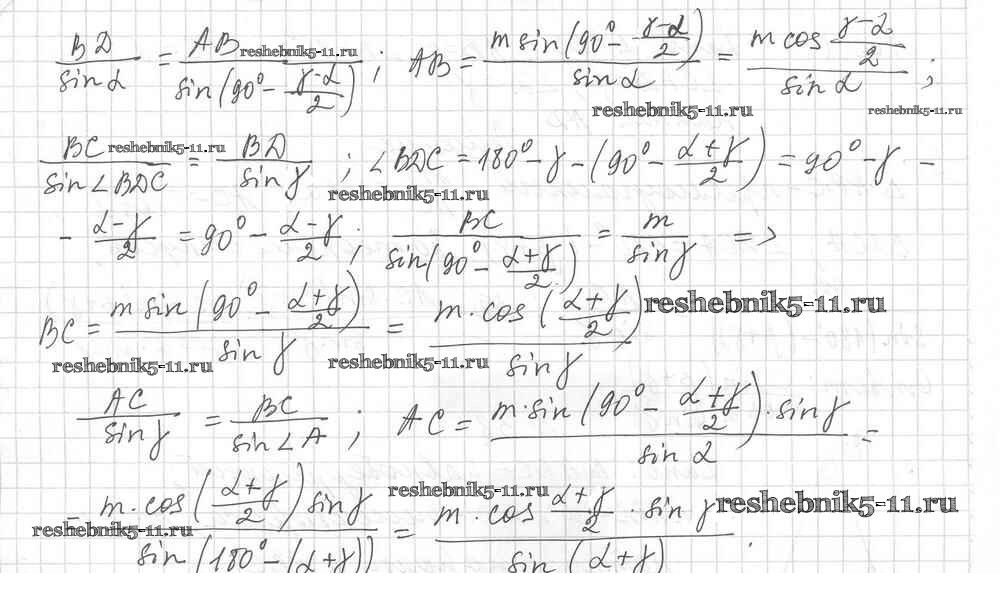 BD/sin α = AB/sin(90° - (γ-α)/2) ; AB = m sin(90° - (γ-α)/2)/sin α = m cos (γ-α)/2 / sin α ;
reshebnik5-11.ru
reshebnik5-11.ru reshebnik5-11.ru
BC/sin∠BDC = BD/sin γ ; ∠BDC = 180° - γ - (90° - (α+γ)/2) = 90° - γ -
reshebnik5-11.ru
reshebnik5-11.ru
- (α-γ)/2 = 90° - (α-γ)/2 ; BC/sin(90° - (α+γ)/2) = m/sin γ =>
BC = m sin(90° - (α+γ)/2)/sin γ = m · cos((α+γ)/2)/sin γ
reshebnik5-11.ru
reshebnik5-11.ru reshebnik5-11.ru
AC/sin γ = BC/sin∠A ; AC = m · sin(90° - (α+γ)/2) · sin γ / sin α =
reshebnik5-11.ru reshebnik5-11.ru
= m · cos((α+γ)/2) sin γ / sin(180° - (α+γ)) = m · cos (α+γ)/2 · sin γ / sin(α+γ) .
reshebnik5-11.ru